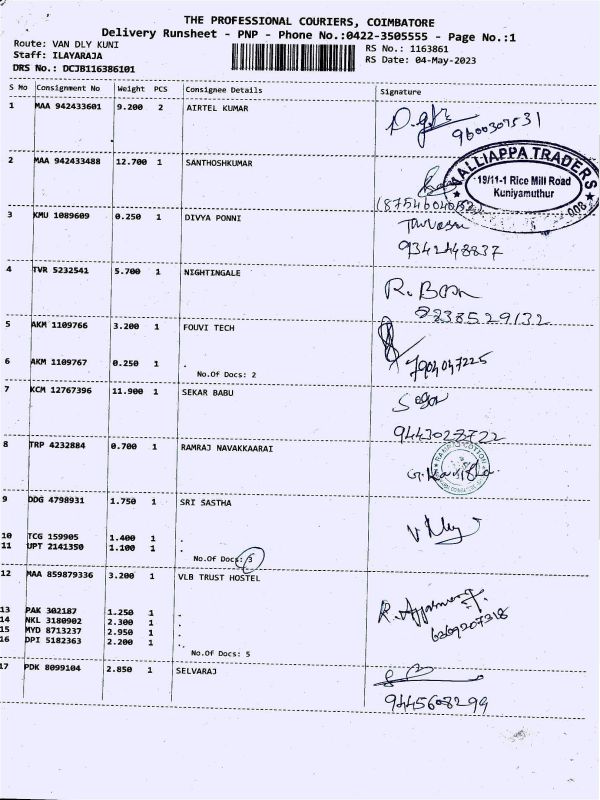 THE PROFESSIONAL COURIERS, COIMBATORE
Delivery Runsheet - PNP - Phone No.:0422-3505555 - Page No.:1
Route: VAN DLY KUNI
RS No.: 1163861
Staff: ILAYARAJA
RS Date: 04-May-2023
DRS No.: DCJB116386101
S No Consignment No Weight PCS Consignee Details Signature
1 MAA 942433601 9.200 2 AIRTEL KUMAR
9600307531
2 MAA 942433488 12.700 1 SANTHOSHKUMAR
NALLIAPPA TRADERS
19/11-1 Rice Mill Road
Kuniyamuthur
008
3 KMU 1089609 0.250 1 DIVYA PONNI
9342448837
4 TVR 5232541 5.700 1 NIGHTINGALE
R.
5 AKM 1109766 3.200 1 FOUVI TECH
7904047225
6 AKM 1109767 0.250 1 .
No.Of Docs: 2
7 KCM 12767396 11.900 1 SEKAR BABU
9443027722
8 TRP 4232884 0.700 1 RAMRAJ NAVAKKAARAI
RAMRAJ COTTON
9 DDG 4798931 1.750 1 SRI SASTHA
10 TCG 159905 1.400 1 .
11 UPT 2141350 1.100 1 .
No.Of Docs: 3
12 MAA 859879336 3.200 1 VLB TRUST HOSTEL
13 PAK 302187 1.250 1 .
14 NKL 3180902 2.300 1 .
15 MYD 8713237 2.950 1 .
16 DPI 5182363 2.200 1 .
6269207318
No.Of Docs: 5
17 PDK 8099104 2.850 1 SELVARAJ
9445608299